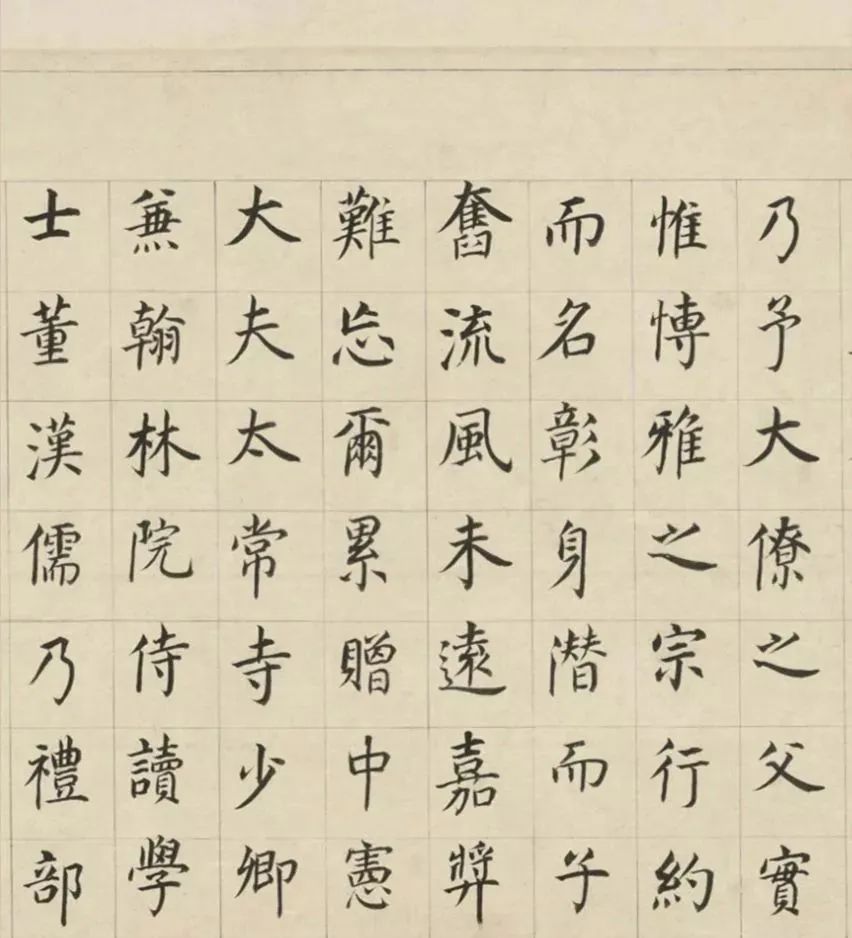 乃予大僚之父實
惟博雅之宗行約
而名彰身潛而子
奮流風未遠嘉奬
難忘爾累贈中憲
大夫太常寺少卿
兼翰林院侍讀學
士董漢儒乃禮部